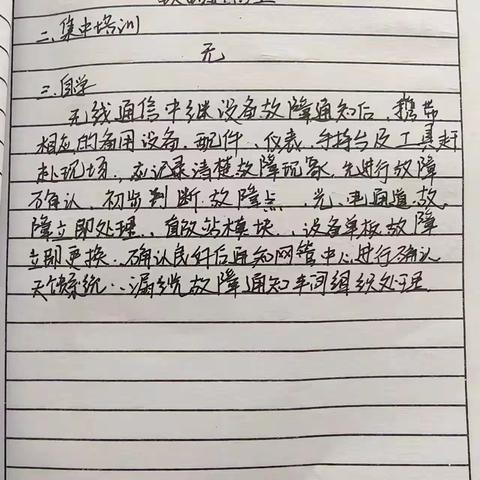 二、集中培训
无
三、自学
无线通信中继设备故障通知后，携带
相应的备用设备、配件、仪表、手持台及工具赶
赴现场，应记录清楚故障现象，先进行故障
确认，初步判断故障点，光、电通道故
障立即处理、直放站模块、设备单板故障
立即更换、确认良好后通知网管中心进行确认
天馈系统、漏缆故障通知车间组织处理